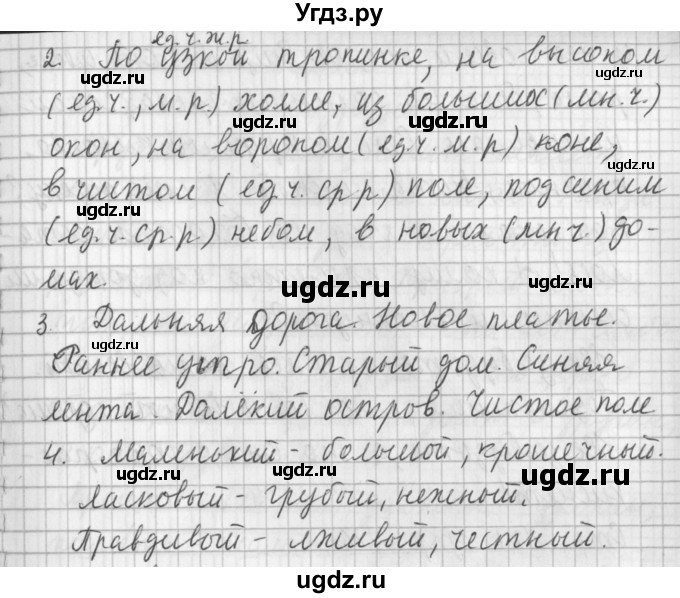 Угдз.ру
ед.ч. ж.р.
2. По узкой тропинке, на высоком
ugdz.ru ugdz.ru
(ед.ч., м.р.) холме, из больших (мн.ч.)
ugdz.ru ugdz.ru
окон, на вороном (ед.ч. м.р) коне,
ugdz.ru
в чистом (ед.ч. ср.р) поле, под синим
ugdz.ru
(ед.ч. ср.р.) небом, в новых (мн ч.) до-
ugdz.ru ugdz.ru
мах.
3. Дальняя дорога. Новое платье.
ugdz.ru
Раннее утро. Старый дом. Синяя
лента. Далёкий остров. Чистое поле
ugdz.ru
4. Маленький - большой, крошечный.
ugdz.ru ugdz.ru
Ласковый - грубый, нежный.
ugdz.ru
Правдивый - лживый, честный.
ugdz.ru